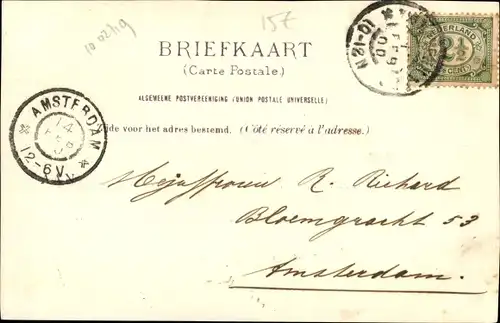 15€
BRIEFKAART
(Carte Postale.)
ALGEMEENE POSTVEREENIGING (UNION POSTALE UNIVERSELLE)
Zijde voor het adres bestemd. (Côté réservé à l'adresse.)
NEDERLAND
2½
CENT
10-12N
AMSTERDAM
14
12-6V
Mejuffrouw R. Richard
Bloemgracht 53
Amsterdam.